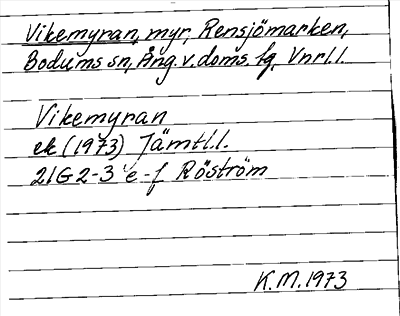 Vikemyran, myr, Rensjömarken,
Bodums sn, Ång. v. doms. fg, Vnrl.l.
Vikemyran
ek (1973) Jämtl.l.
21G 2-3 e-f Röström
K.M. 1973